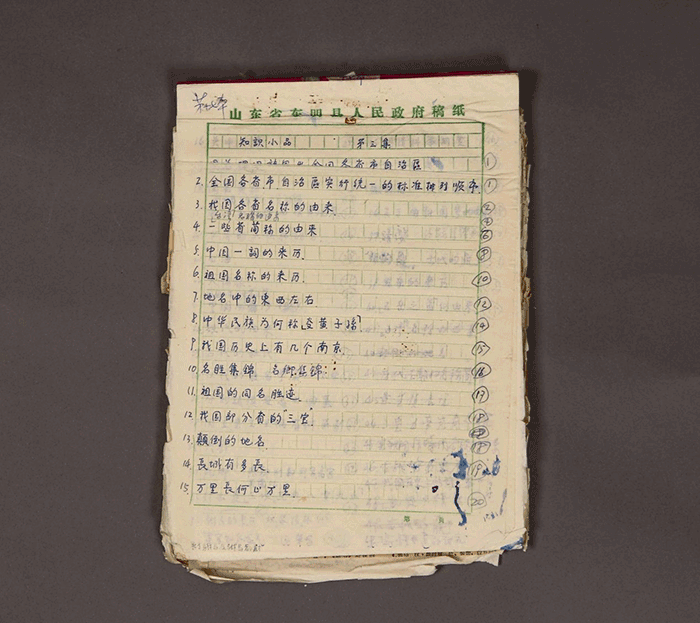 山东省东明县人民政府稿纸
知识小品 第三集
全国各省市自治区 ①
2. 全国各省市自治区实行统一的标准排列顺序 ①
3. 我国各省名称的由来 ②
4. 一些省简称的由来 ⑥
5. 中国一詞的来历 ⑨
6. 祖国名称的来历 ⑩
7. 地名中的東西左右 ⑫
8. 中华民族为何称炎黄子孙? ⑭
9. 我国历史上有几个南京 ⑮
10. 名胜集錦 名鄉集錦 ⑯
11. 祖国的同名胜迹 ⑰
12. 我国部分省的"三宝" ⑱
13. 顛倒的地名
14. 長城有多長 ⑲
15. 万里長何止万里 ⑳